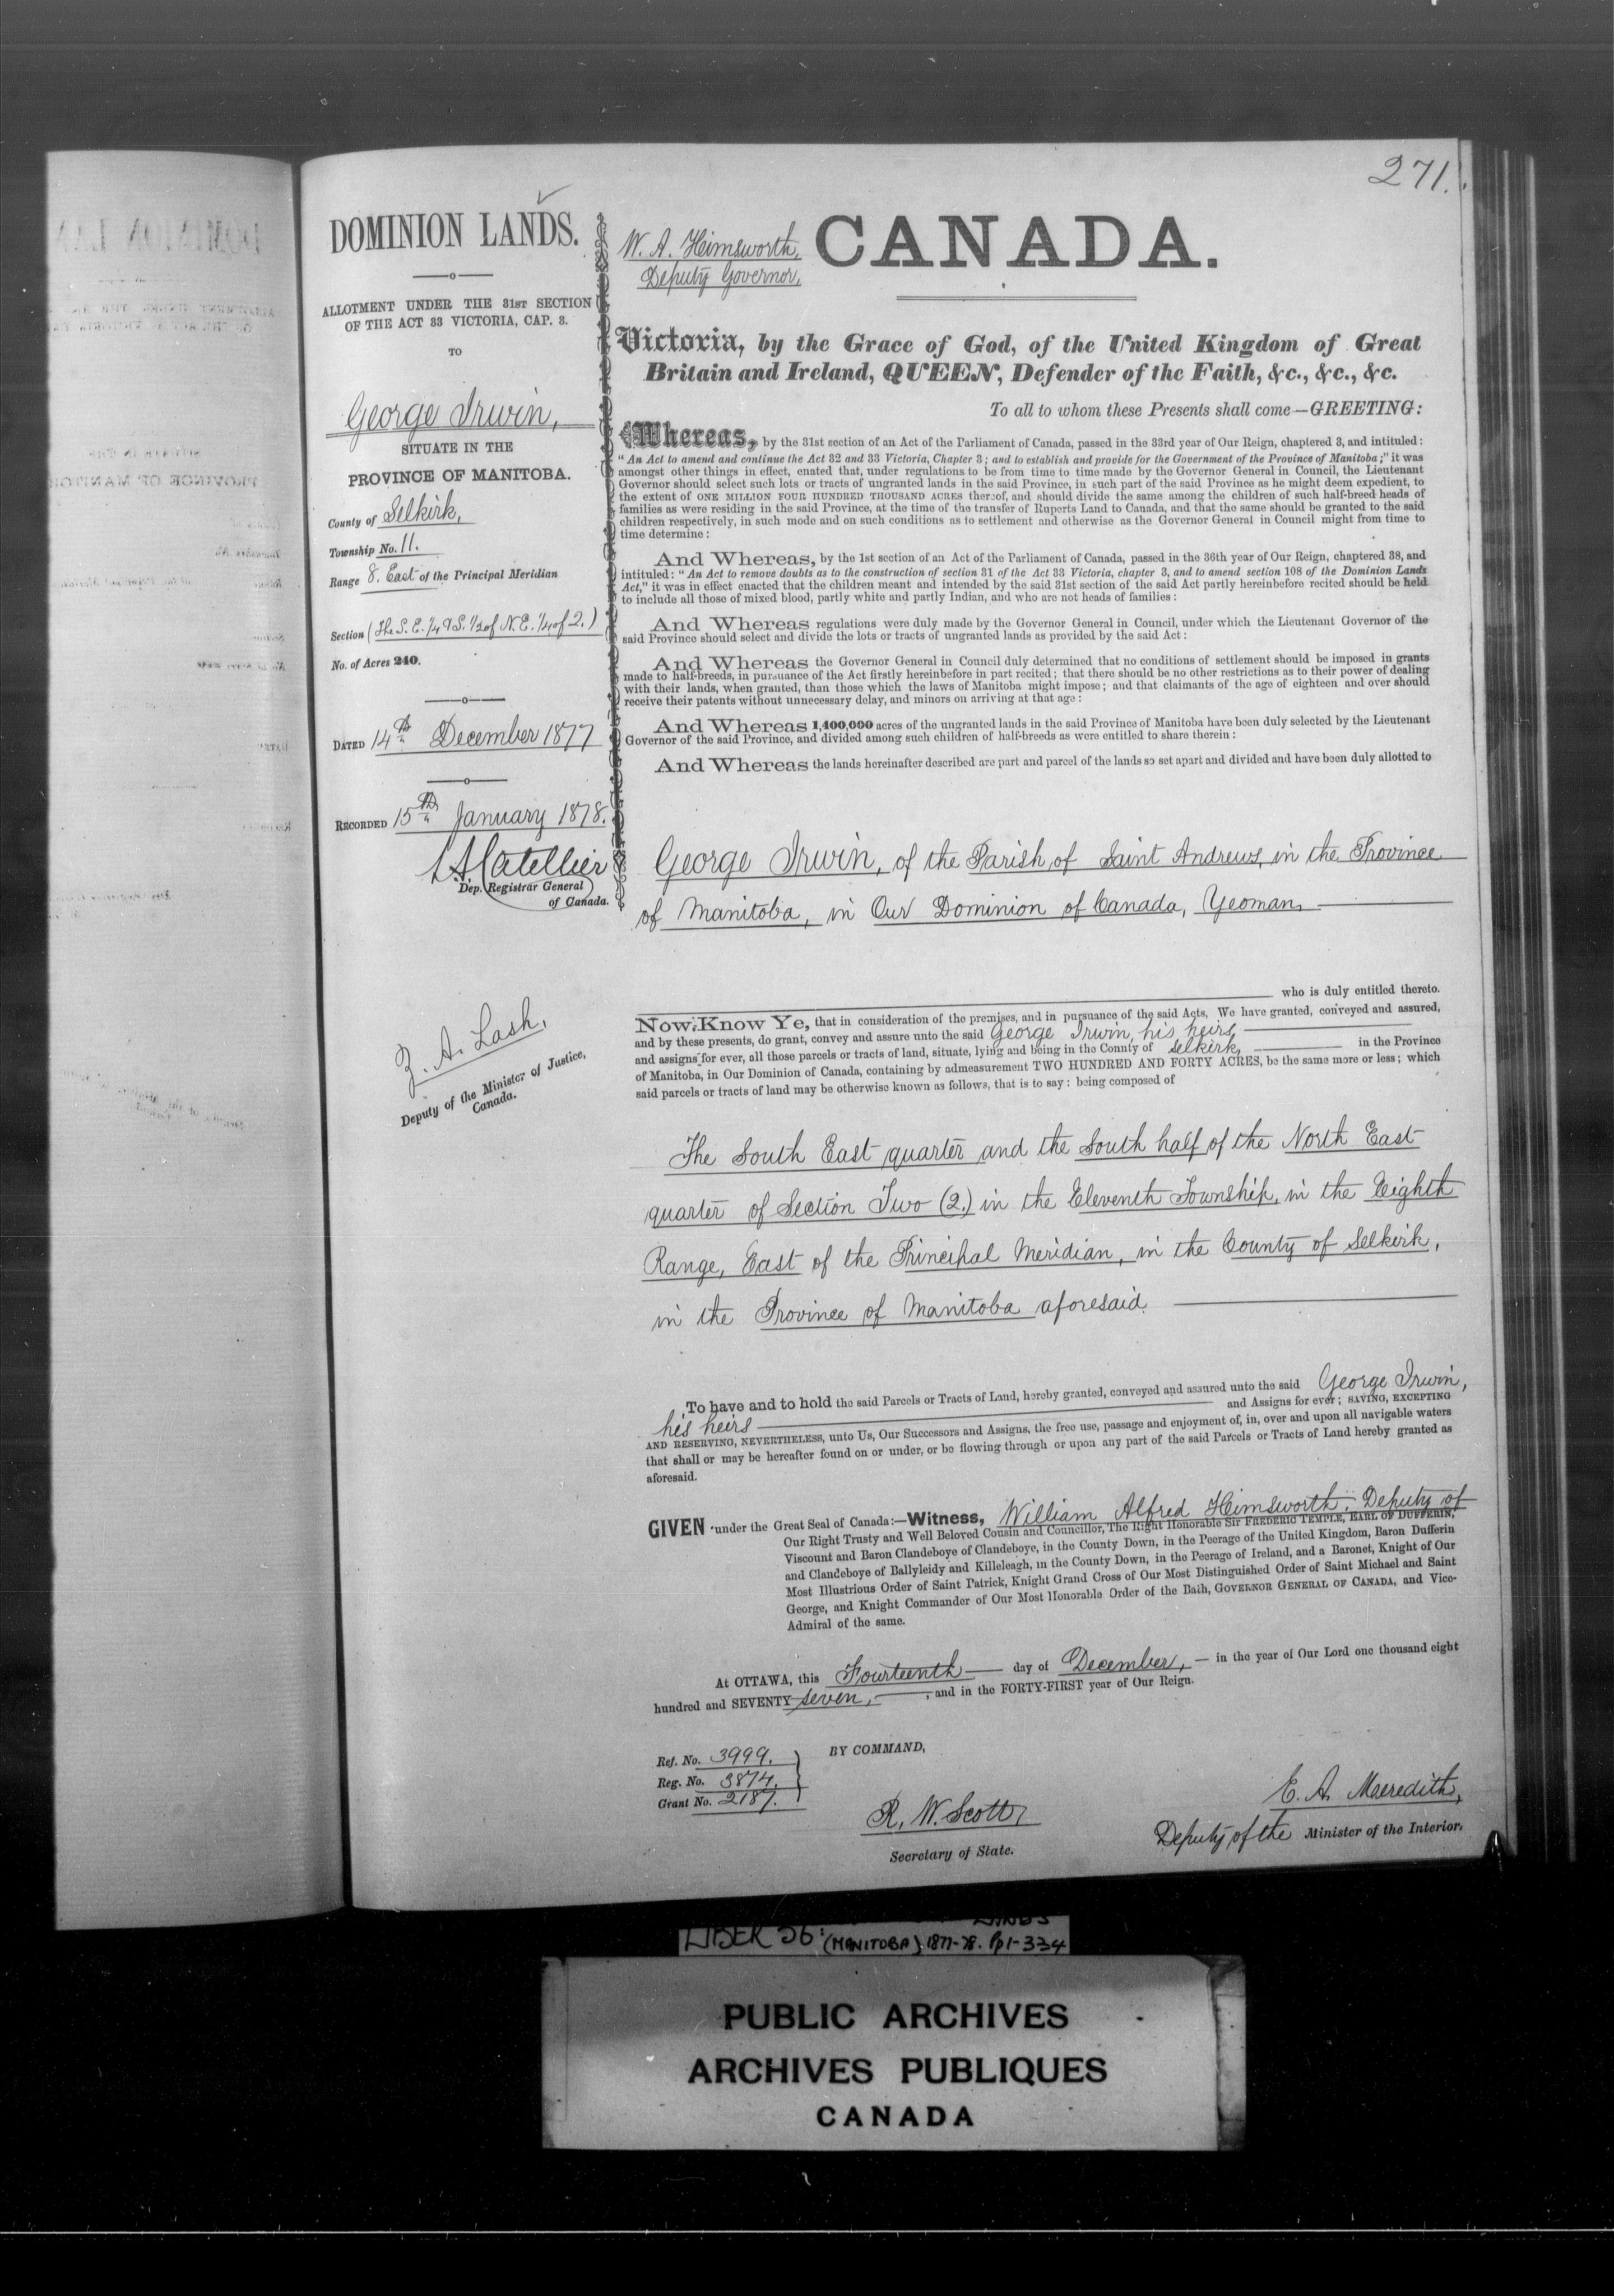 271.
DOMINION LANDS.
ALLOTMENT UNDER THE 31ST SECTION
OF THE ACT 33 VICTORIA, CAP. 3.
TO
George Irwin,
SITUATE IN THE
PROVINCE OF MANITOBA.
County of Selkirk,
Township No. 11.
Range 8. East of the Principal Meridian
Section (The S.E. 1/4 & S. 1/2 of N.E. 1/4 of 2.)
No. of Acres 240.
DATED 14th December 1877
RECORDED 15th January 1878.
Dep. Registrar General
of Canada.
Z. A. Lash,
Deputy of the Minister of Justice,
Canada.
W. A. Himsworth,
Deputy Governor,
CANADA.
Victoria, by the Grace of God, of the United Kingdom of Great
Britain and Ireland, QUEEN, Defender of the Faith, &c., &c., &c.
To all to whom these Presents shall come—GREETING:
Whereas, by the 31st section of an Act of the Parliament of Canada, passed in the 33rd year of Our Reign, chaptered 3, and intituled:
"An Act to amend and continue the Act 32 and 33 Victoria, Chapter 3; and to establish and provide for the Government of the Province of Manitoba;" it was
amongst other things in effect, enated that, under regulations to be from time to time made by the Governor General in Council, the Lieutenant
Governor should select such lots or tracts of ungranted lands in the said Province, in such part of the said Province as he might deem expedient, to
the extent of ONE MILLION FOUR HUNDRED THOUSAND ACRES thereof, and should divide the same among the children of such half-breed heads of
families as were residing in the said Province, at the time of the transfer of Ruperts Land to Canada, and that the same should be granted to the said
children respectively, in such mode and on such conditions as to settlement and otherwise as the Governor General in Council might from time to
time determine:
And Whereas, by the 1st section of an Act of the Parliament of Canada, passed in the 36th year of Our Reign, chaptered 38, and
intituled: "An Act to remove doubts as to the construction of section 31 of the Act 33 Victoria, chapter 3, and to amend section 108 of the Dominion Lands
Act," it was in effect enacted that the children meant and intended by the said 31st section of the said Act partly hereinbefore recited should be held
to include all those of mixed blood, partly white and partly Indian, and who are not heads of families:
And Whereas regulations were duly made by the Governor General in Council, under which the Lieutenant Governor of the
said Province should select and divide the lots or tracts of ungranted lands as provided by the said Act:
And Whereas the Governor General in Council duly determined that no conditions of settlement should be imposed in grants
made to half-breeds, in pursuance of the Act firstly hereinbefore in part recited; that there should be no other restrictions as to their power of dealing
with their lands, when granted, than those which the laws of Manitoba might impose; and that claimants of the age of eighteen and over should
receive their patents without unnecessary delay, and minors on arriving at that age:
And Whereas 1,400,000 acres of the ungranted lands in the said Province of Manitoba have been duly selected by the Lieutenant
Governor of the said Province, and divided among such children of half-breeds as were entitled to share therein:
And Whereas the lands hereinafter described are part and parcel of the lands so set apart and divided and have been duly allotted to
George Irwin, of the Parish of Saint Andrews, in the Province
of Manitoba, in Our Dominion of Canada, Yeoman,
who is duly entitled thereto.
Now Know Ye, that in consideration of the premises, and in pursuance of the said Acts, We have granted, conveyed and assured,
and by these presents, do grant, convey and assure unto the said George Irwin, his heirs
and assigns for ever, all those parcels or tracts of land, situate, lying and being in the County of Selkirk, in the Province
of Manitoba, in Our Dominion of Canada, containing by admeasurement TWO HUNDRED AND FORTY ACRES, be the same more or less; which
said parcels or tracts of land may be otherwise known as follows, that is to say: being composed of
The South East quarter and the South half of the North East
quarter of Section Two (2.) in the Eleventh Township, in the Eighth
Range, East of the Principal Meridian, in the County of Selkirk,
in the Province of Manitoba aforesaid.
To have and to hold the said Parcels or Tracts of Land, hereby granted, conveyed and assured unto the said George Irwin,
his heirs and Assigns for ever; SAVING, EXCEPTING
AND RESERVING, NEVERTHELESS, unto Us, Our Successors and Assigns, the free use, passage and enjoyment of, in, over and upon all navigable waters
that shall or may be hereafter found on or under, or be flowing through or upon any part of the said Parcels or Tracts of Land hereby granted as
aforesaid.
GIVEN under the Great Seal of Canada:—Witness, William Alfred Himsworth, Deputy of
Our Right Trusty and Well Beloved Cousin and Councillor, The Right Honorable Sir FREDERIC TEMPLE, EARL OF DUFFERIN,
Viscount and Baron Clandeboye of Clandeboye, in the County Down, in the Peerage of the United Kingdom, Baron Dufferin
and Clandeboye of Ballyleidy and Killeleagh, in the County Down, in the Peerage of Ireland, and a Baronet, Knight of Our
Most Illustrious Order of Saint Patrick, Knight Grand Cross of Our Most Distinguished Order of Saint Michael and Saint
George, and Knight Commander of Our Most Honorable Order of the Bath, GOVERNOR GENERAL OF CANADA, and Vice-
Admiral of the same.
At OTTAWA, this Fourteenth day of December, in the year of Our Lord one thousand eight
hundred and SEVENTY seven, and in the FORTY-FIRST year of Our Reign.
Ref. No. 3999.
Reg. No. 3874.
Grant No. 2187.
BY COMMAND,
R. W. Scott,
Secretary of State.
E. A. Meredith,
Deputy of the Minister of the Interior.
LIBER 56: LANDS
(MANITOBA) 1877-78. Pp 1-334
PUBLIC ARCHIVES
ARCHIVES PUBLIQUES
CANADA